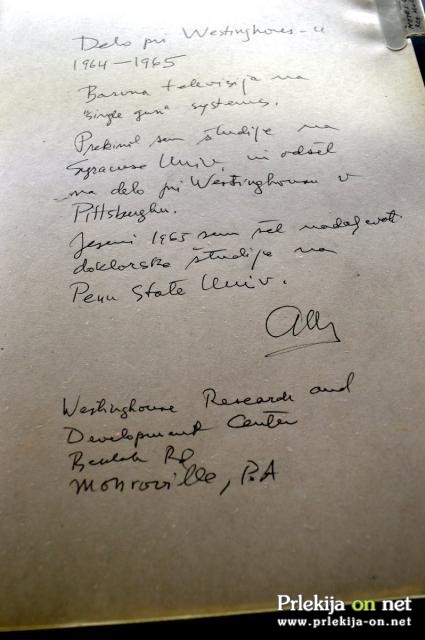 Delo pri Westinghouse-u
1964-1965
Barvna televizija na
"single gun" systems.
Prekinil sem študije na
Syracuse Univ. in odšel
na delo pri Westinghousu v
Pittsburghu.
Jeseni 1965 sem šel nadaljevati
doktorske študije na
Penn State Univ.
Westinghouse Research and
Development Center
Beulah Rd
Monroville, P.A
Prlekija on net
www.prlekija-on.net